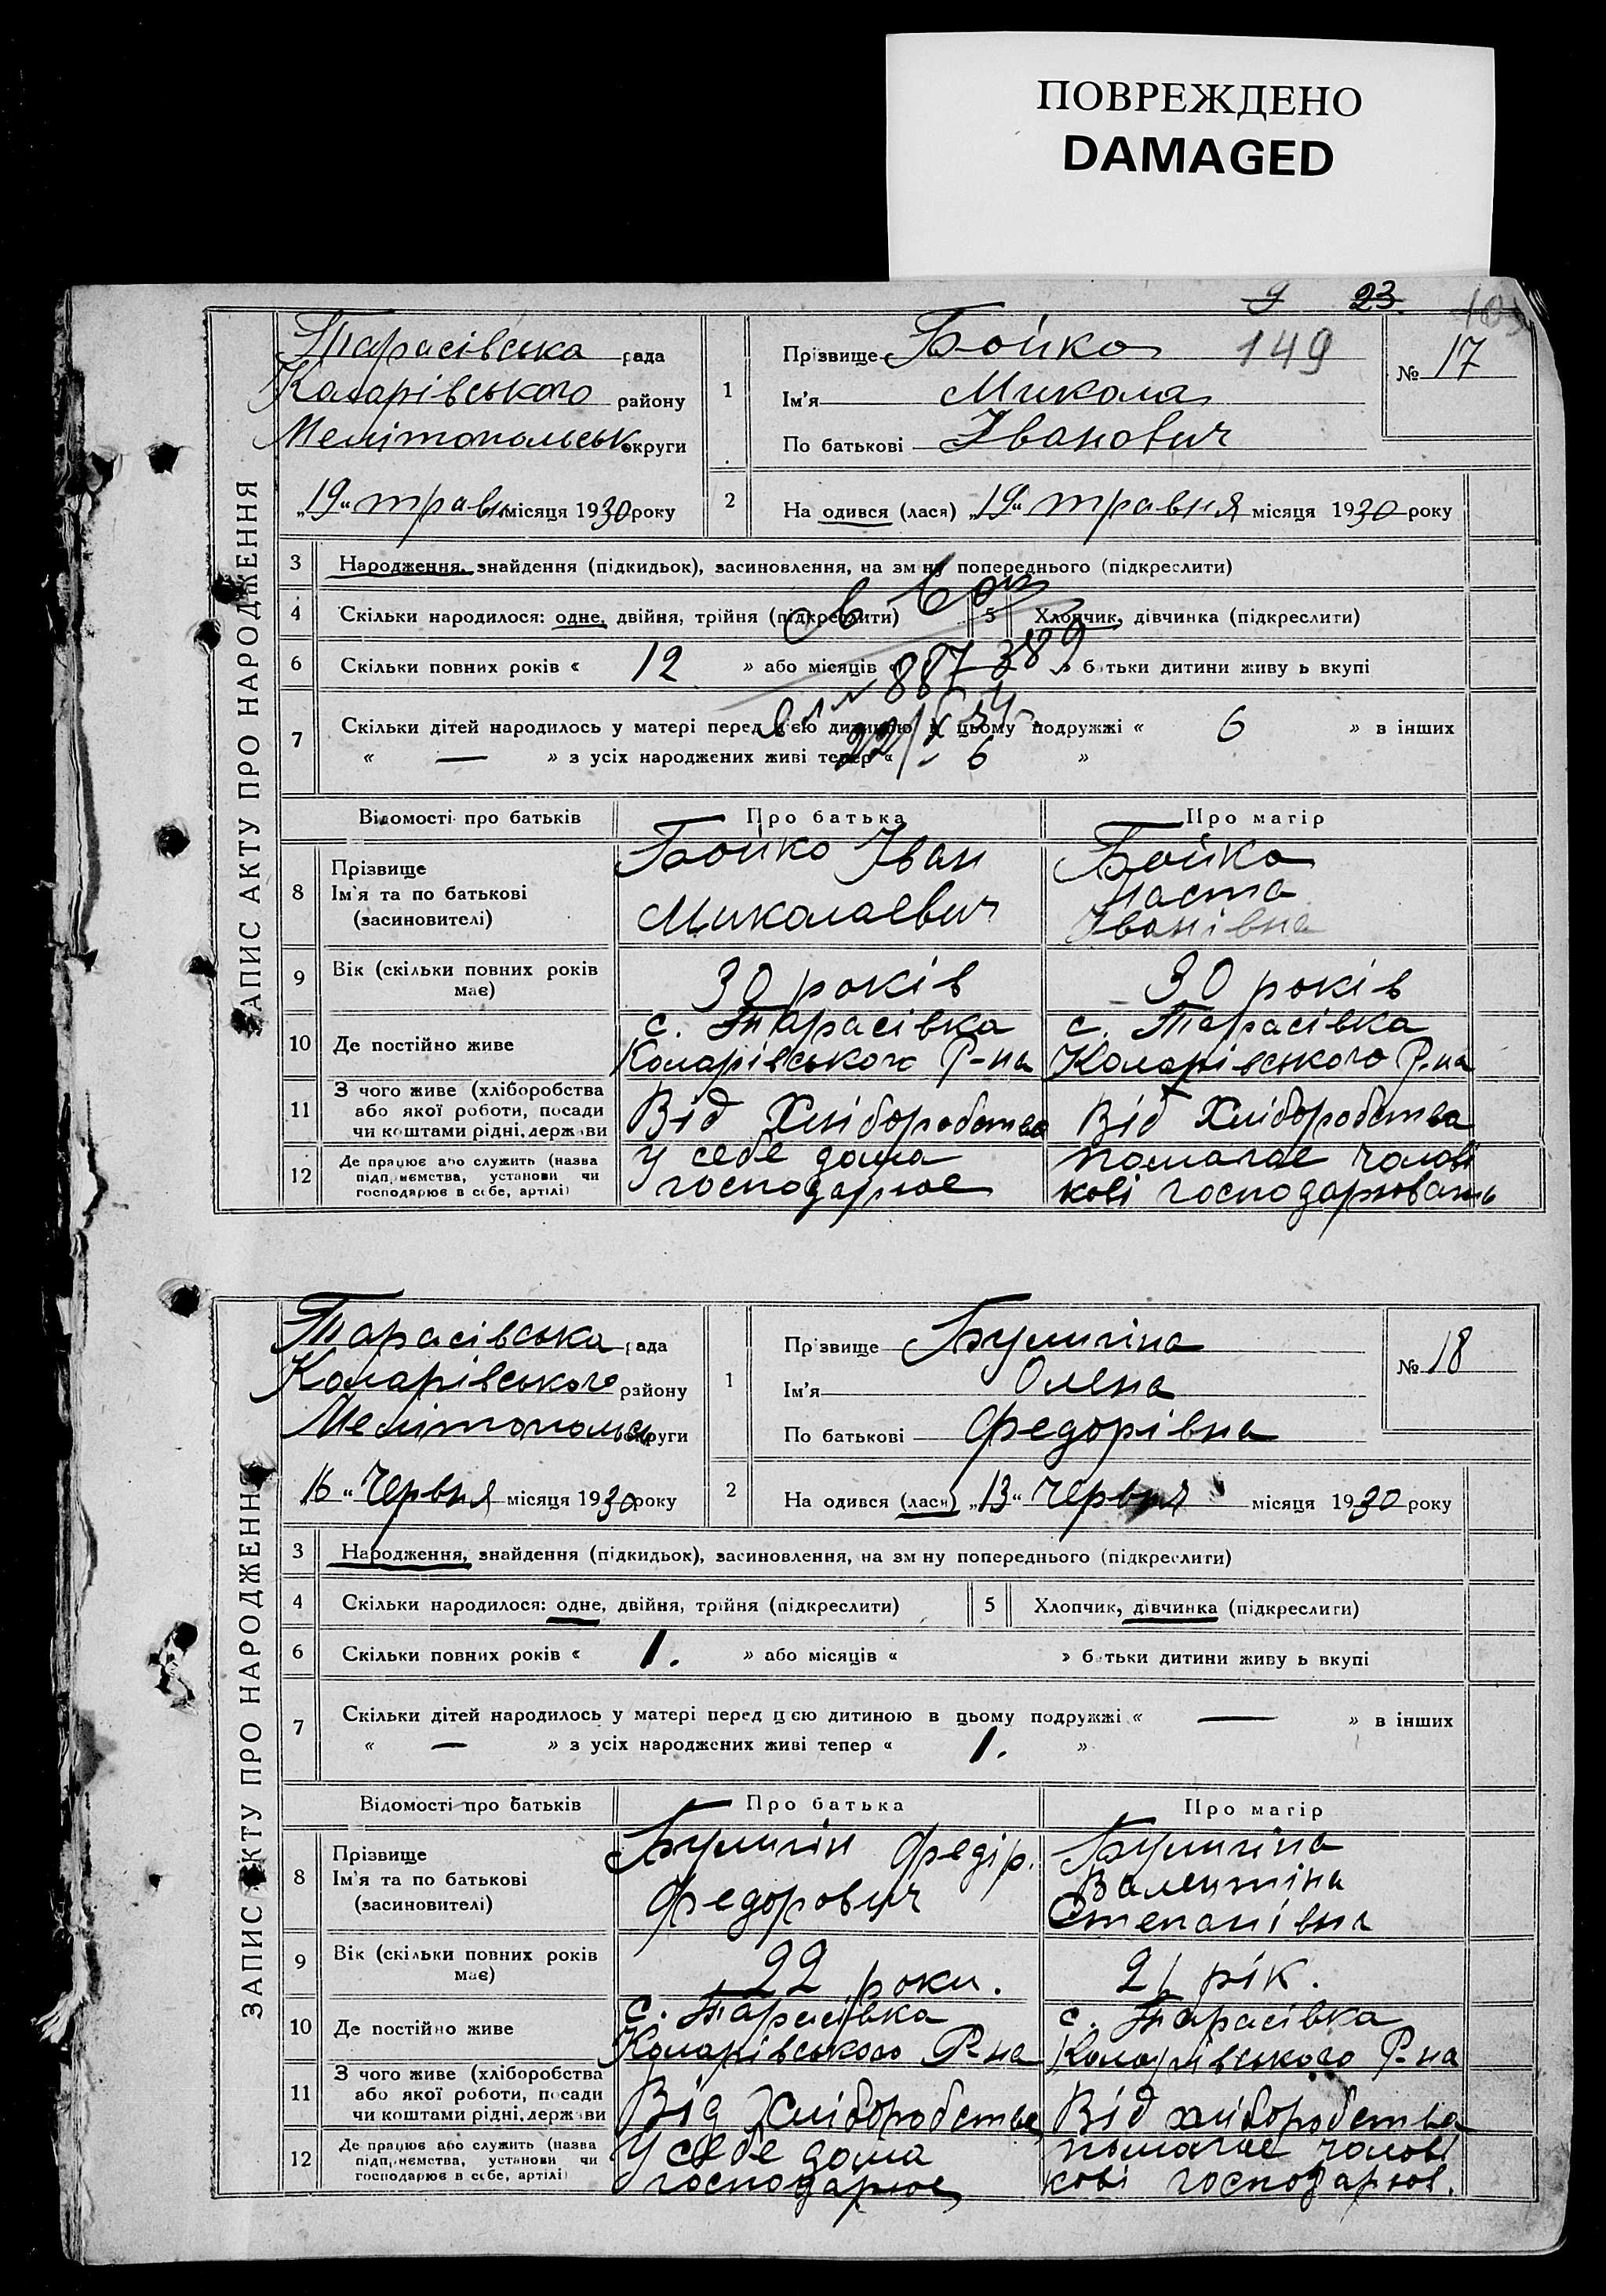 ПОВРЕЖДЕНО
DAMAGED
9 23. 103
ЗАПИС АКТУ ПРО НАРОДЖЕННЯ
Тарасівська рада
Коларівського району
Мелітопольськ округи
„19“ травн місяця 1930 року
1
Прізвище Бойко 149
Ім'я Микола
По батькові Іванович
№ 17
2 На одився (лася) „19“ травня місяця 1930 року
3 Народження, знайдення (підкидьок), засиновлення, на зм ну попереднього (підкреслити)
4 Скільки народилося: одне, двійня, трійня (підкреслити) 5 Хлопчик, дівчинка (підкреслити)
6 Скільки повних років « 12 » або місяців « » батьки дитини живу ь вкупі
887 389
7 Скільки дітей народилось у матері перед цією дитиною в цьому подружжі « 6 » в інших
« — » з усіх народжених живі тепер « 6 »
Відомості про батьків Про батька Про матір
8 Прізвище
Ім'я та по батькові
(засиновителі)
Бойко Іван
Миколаевич
Бойко
Наста
Іванівна
9 Вік (скільки повних років
має)
30 років 30 років
10 Де постійно живе
с. Тарасівка
Коларівського Р-на
с. Тарасівка
Коларівського Р-на
11 З чого живе (хліборобства
або якої роботи, посади
чи коштами рідні, держави
Від Хліборобства Від Хліборобства
12 Де працює або служить (назва
підприємства, установи чи
господарює в себе, артілі)
У себе дома
господарює
помагае чолові
кові господарювать
ЗАПИС АКТУ ПРО НАРОДЖЕННЯ
Тарасівська рада
Коларівського району
Мелітопольсь округи
16 “ Червня місяця 1930 року
1
Прізвище Булигіна
Ім'я Олена
По батькові Федорівна
№ 18
2 На одився (лася) „13“ червня місяця 1930 року
3 Народження, знайдення (підкидьок), засиновлення, на зм ну попереднього (підкреслити)
4 Скільки народилося: одне, двійня, трійня (підкреслити) 5 Хлопчик, дівчинка (підкреслити)
6 Скільки повних років « 1. » або місяців « » батьки дитини живу ь вкупі
7 Скільки дітей народилось у матері перед цією дитиною в цьому подружжі « — » в інших
« — » з усіх народжених живі тепер « 1. »
Відомості про батьків Про батька Про матір
8 Прізвище
Ім'я та по батькові
(засиновителі)
Булигін Федір.
Федорович
Булигіна
Валентіна
Степанівна
9 Вік (скільки повних років
має)
22 роки. 21 рік.
10 Де постійно живе
с. Тарасівка
Коларівського Р-на
с. Тарасівка
Коларівського Р-на
11 З чого живе (хліборобства
або якої роботи, посади
чи коштами рідні, держави
Від Хліборобства Від хліборобства
12 Де працює або служить (назва
підприємства, установи чи
господарює в себе, артілі)
У себе дома
господарює
помагае чолові
кові господарюв.